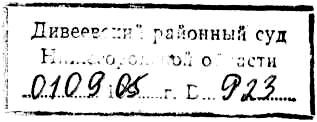 Дивеевский районный суд
Нижегородской области
0109 05 г. В 923